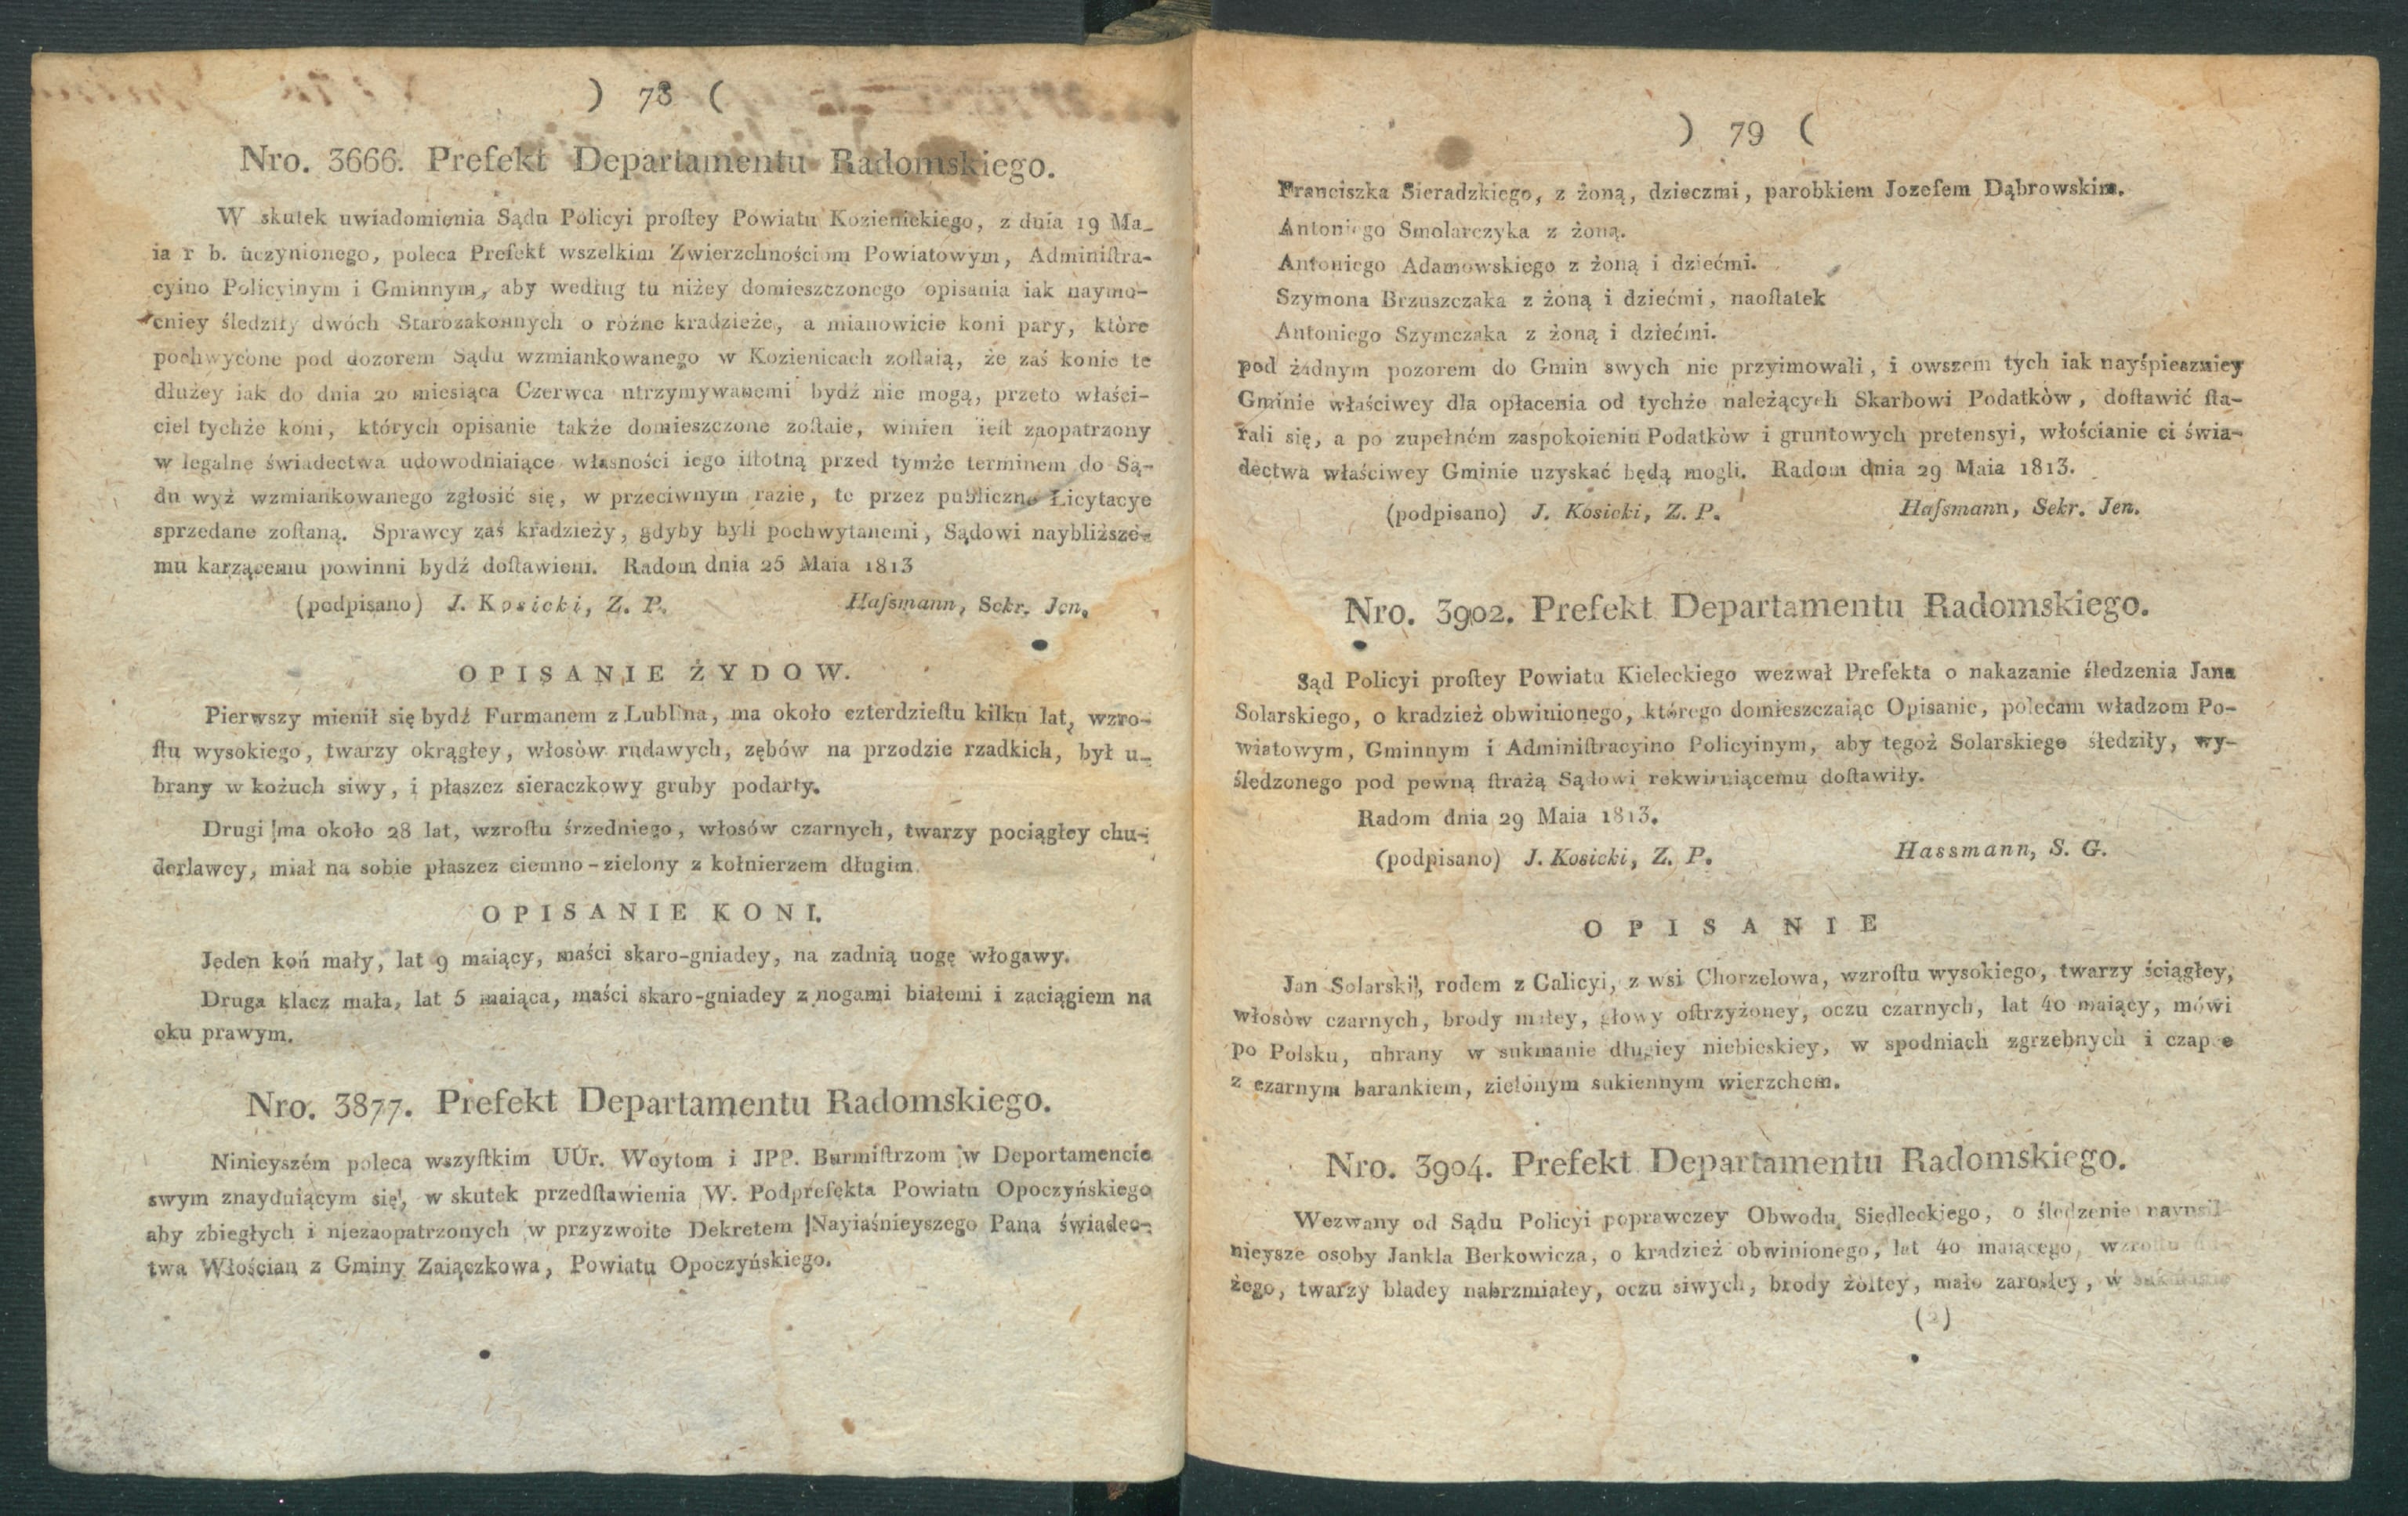 ) 78 (
Nro. 3666. Prefekt Departamentu Radomskiego.
W skutek uwiadomienia Sądu Policyi prostey Powiatu Kozienickiego, z dnia 19 Ma_
ia r b. uczynionego, poleca Prefekt wszelkim Zwierzchnościom Powiatowym, Administra-
cyino Policyinym i Gminnym, aby według tu niżey domieszczonego opisania iak naymo-
cniey śledziły dwóch Starozakonnych o różne kradzieże, a mianowicie koni pary, które
pochwycone pod dozorem Sądu wzmiankowanego w Kozienicach zostaią, że zaś konie te
dłużey iak do dnia 20 miesiąca Czerwca ntrzymywanemi bydź nie mogą, przeto właści-
ciel tychże koni, których opisanie także domieszczone zostaie, winien iest zaopatrzony
w legalne świadectwa udowodniaiące własności iego istotną przed tymże terminem do Są-
dn wyż wzmiankowanego zgłosić się, w przeciwnym razie, te przez publiczne Licytacye
sprzedane zostaną. Sprawcy zaś kradzieży, gdyby byli pochwytanemi, Sądowi naybliższe-
mu karzącemu powinni bydź dostawieni. Radom dnia 25 Maia 1813
(podpisano) J. Kosicki, Z. P. Hassmann, Sekr. Jen.
OPISANIE ŻYDOW.
Pierwszy mienił się bydź Furmanem z Lublina, ma około czterdziestu kilku lat, wzro-
stu wysokiego, twarzy okrągłey, włosòw rudawych, zębów na przodzie rzadkich, był u-
brany w kożuch siwy, i płaszcz sieraczkowy gruby podarty.
Drugi ma około 28 lat, wzrostu śrzedniego, włosów czarnych, twarzy pociągłey chu-
derlawey, miał na sobie płaszcz ciemno-zielony z kołnierzem długim.
OPISANIE KONI.
Jeden koń mały, lat 9 maiący, maści skaro-gniadey, na zadnią uogę włogawy.
Druga klacz mała, lat 5 maiąca, maści skaro-gniadey z nogami białemi i zaciągiem na
oku prawym.
Nro. 3877. Prefekt Departamentu Radomskiego.
Ninieyszém poleca wszystkim UUr. Woytom i JPP. Burmistrzom w Deportamencie
swym znayduiącym się, w skutek przedstawienia W. Podprefekta Powiatu Opoczyńskiego
aby zbiegłych i niezaopatrzonych w przyzwoite Dekretem Nayiaśnieyszego Pana świadec-
twa Włościan z Gminy Zaiączkowa, Powiatu Opoczyńskiego.
) 79 (
Franciszka Sieradzkiego, z żoną, dzieczmi, parobkiem Jozefem Dąbrowskim.
Antoniego Smolarczyka z żoną.
Antoniego Adamowskiego z żoną i dziećmi.
Szymona Brzuszczaka z żoną i dziećmi, naostatek
Antoniego Szymczaka z żoną i dziećmi.
pod żadnym pozorem do Gmin swych nie przyimowali, i owszem tych iak nayśpieszniey
Gminie właściwey dla opłacenia od tychże należących Skarbowi Podatkòw, dostawić sta-
rali się, a po zupełném zaspokoieniu Podatkòw i gruntowych pretensyi, włościanie ci świa-
dectwa właściwey Gminie uzyskać będą mogli. Radom dnia 29 Maia 1813.
(podpisano) J. Kosicki, Z. P. Hassmann, Sekr. Jen.
Nro. 3902. Prefekt Departamentu Radomskiego.
Sąd Policyi prostey Powiatu Kieleckiego wezwał Prefekta o nakazanie śledzenia Jana
Solarskiego, o kradzież obwinionego, którego domieszczaiąc Opisanie, polecam władzom Po-
wiatowym, Gminnym i Administracyino Policyinym, aby tegoż Solarskiego śledziły, wy-
śledzonego pod pewną strażą Sądowi rekwiruiącemu dostawiły.
Radom dnia 29 Maia 1813.
(podpisano) J. Kosicki, Z. P. Hassmann, S. G.
OPISANIE
Jan Solarski, rodem z Galicyi, z wsi Chorzelowa, wzrostu wysokiego, twarzy ściągłey,
włosòw czarnych, brody małey, głowy ostrzyżoney, oczu czarnych, lat 40 maiący, mówi
po Polsku, ubrany w sukmanie długiey niebieskiey, w spodniach zgrzebnych i czap e
z czarnym barankiem, zielonym sukiennym wierzchem.
Nro. 3904. Prefekt Departamentu Radomskiego.
Wezwany od Sądu Policyi poprawczey Obwodu Siedleckiego, o śledzenie nayusil-
nieysze osoby Jankla Berkowicza, o kradzież obwinionego, lat 40 maiącego, wzrostu
żego, twarzy bladey nabrzmiałey, oczu siwych, brody żółtey, mało zarosłey, w
(2)